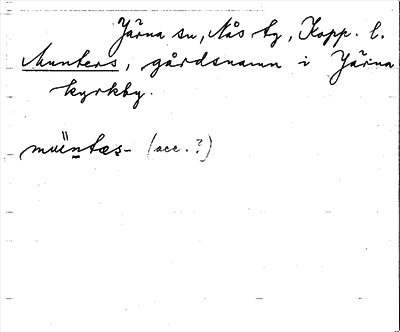 Järna sn, Nås tg, Kopp. l.
Munters, gårdsnamn i Järna
kyrkby.
(acc. ?)